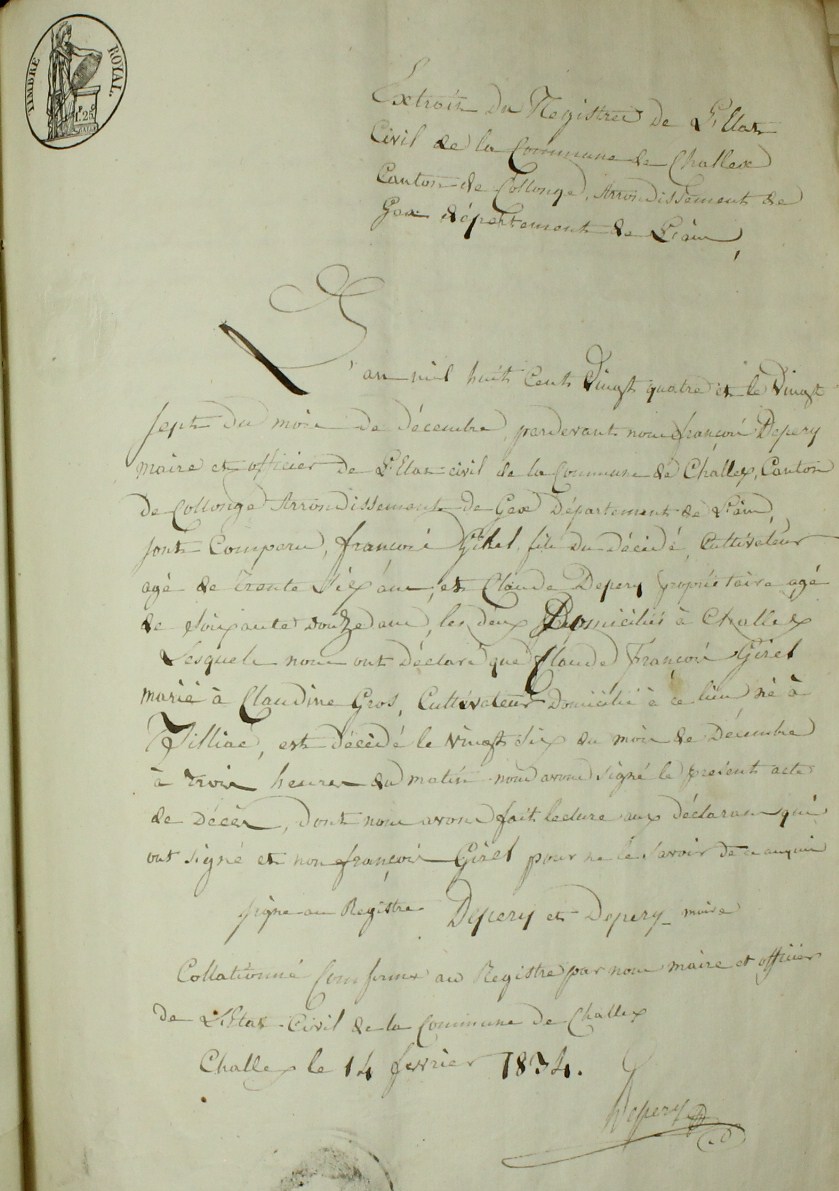 TIMBRE ROYAL.
1F 25C
Extrait du Registre de L'Etat
Civil de la Commune de Challex
Canton de Collonge, Arrondissement de
Gex département de L'ain,
L'an mil huit Cent Vingt quatre et le Vingt
sept du mois de décembre, pardevant nous françois Depery
maire et officier de L'Etat-civil de la Commune de Challex, Canton
de Collonge Arrondissement de Gex Département de L'ain,
sont Comparu, françois Girel, fils du décédé, Cultivateur
agé de trente six ans, et Claude Depery propriétaire agé
de soixante douze ans, les deux Domiciliés à Challex
Lesquels nous ont Déclaré que Claude François Girel
marié à Claudine Gros, Cultivateur Domicilié à ce lieu né à
est décédé le Vingt six du mois de Décembre
à trois heures du matin nous avons signé le présent acte
de Décès, dont nous avons fait lecture aux déclarans qui
ont signé et non françois Girel pour ne le savoir de ce
signé au Registre Depery et Depery maire
Collationné Conforme au Registre par nous maire et officier
de L'Etat-Civil de la Commune de Challex
Challex le 14 fevrier 1834.
Depery